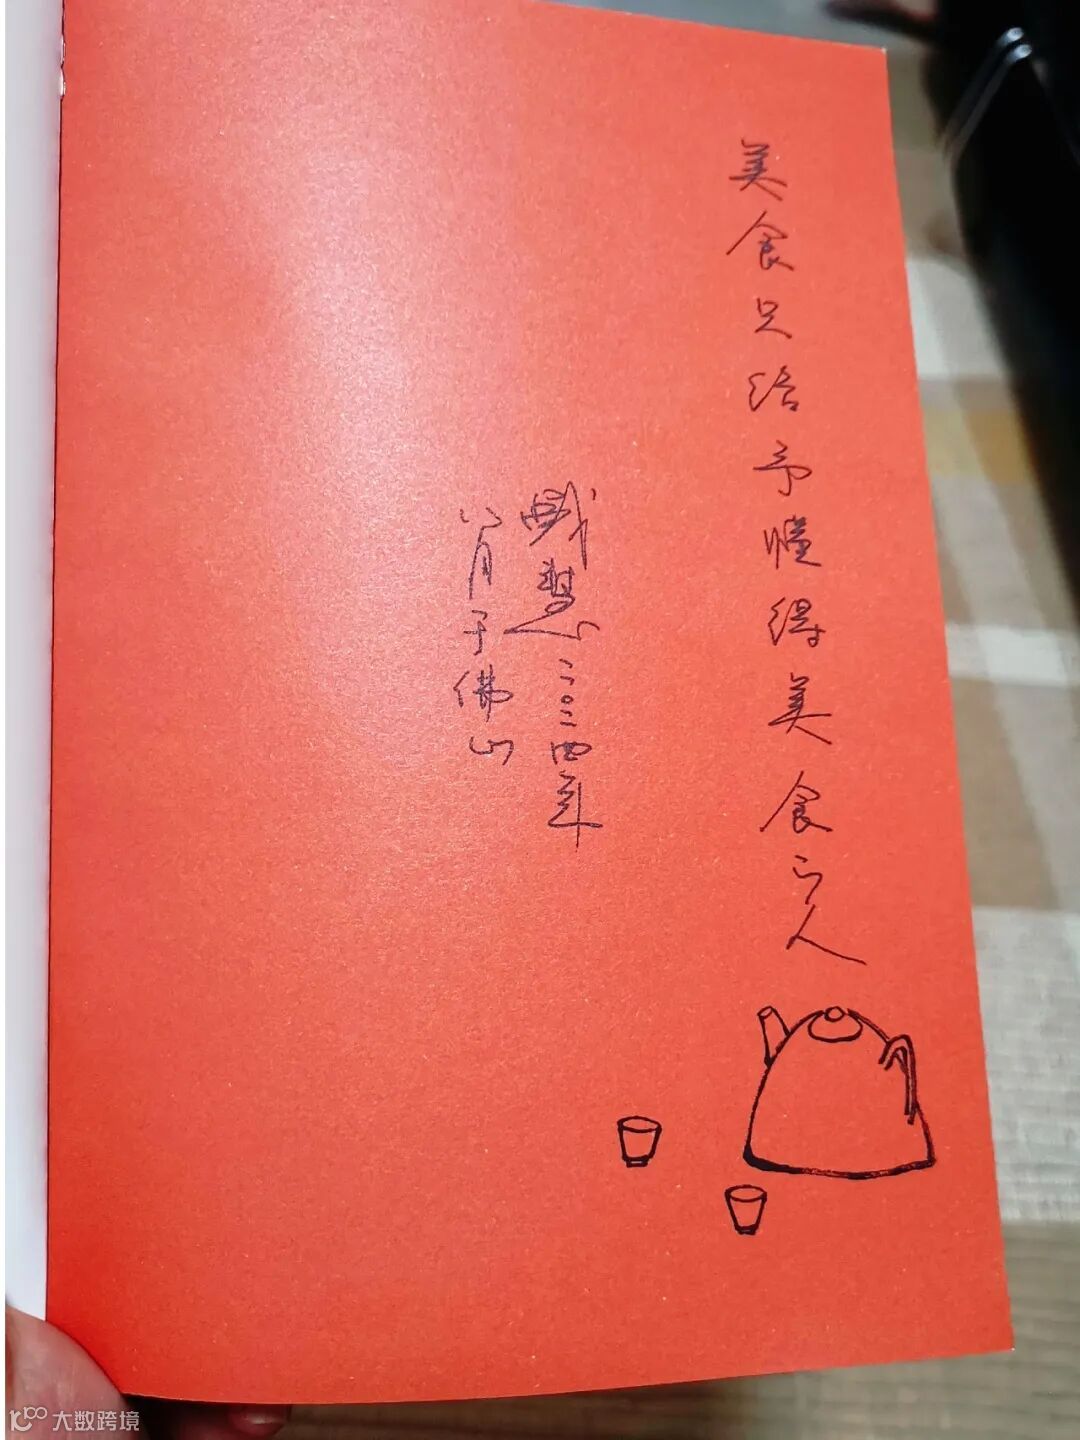 美食只给予懂得美食之人
二〇二四年
八月于佛山
大数跨境